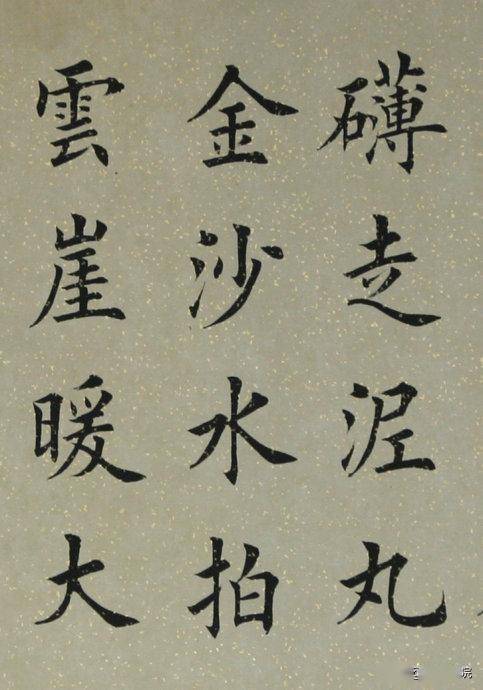 礴走泥丸
金沙水拍
雲崖暖大
院